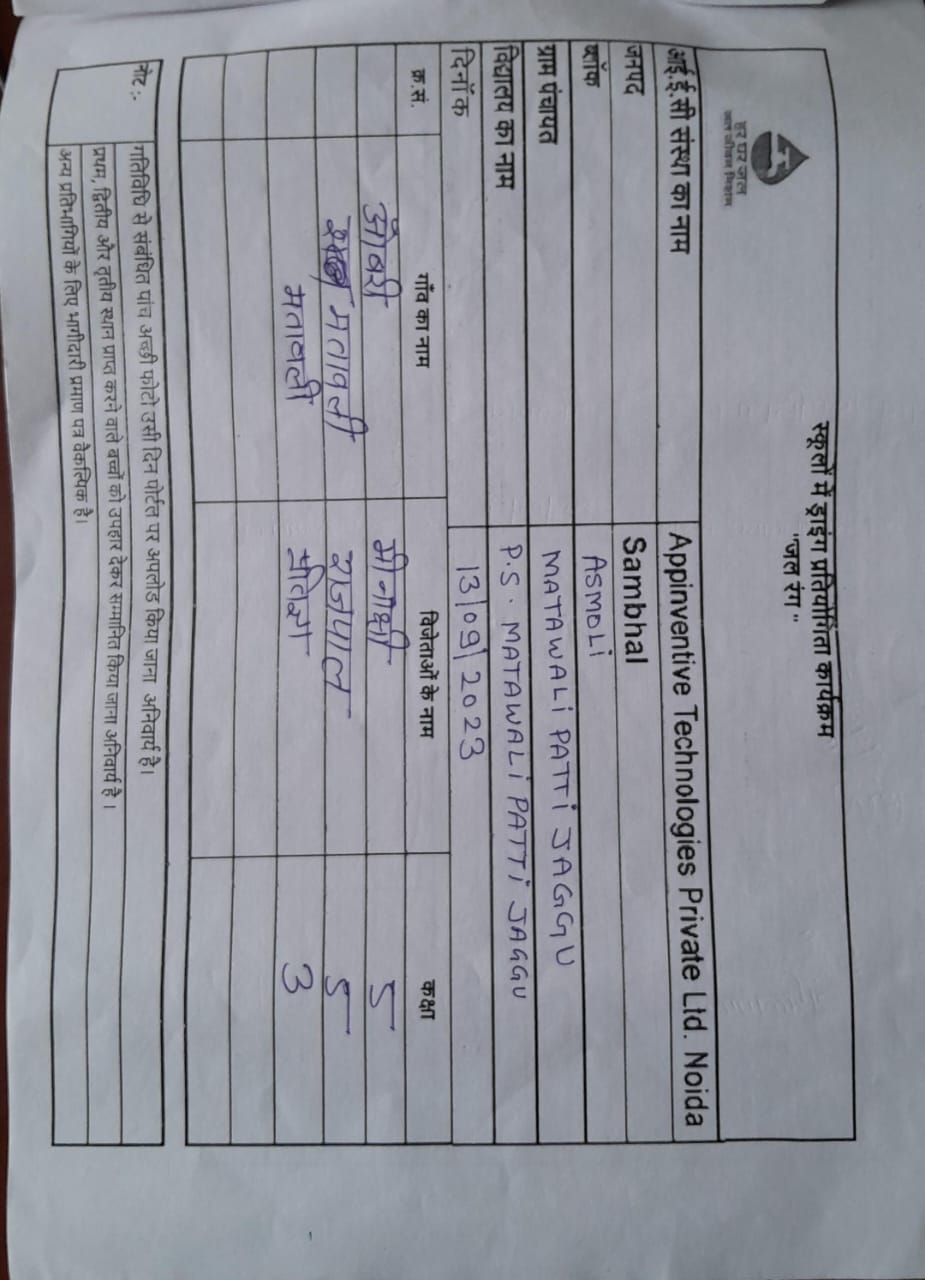 हर घर जल
जल जीवन मिशन
स्कूलों में ड्राइंग प्रतियोगिता कार्यक्रम
"जल रंग"
आई.ई.सी संस्था का नाम Appinventive Technologies Private Ltd. Noida
जनपद Sambhal
ब्लॉक ASMOLI
ग्राम पंचायत MATAWALI PATTI JAGGU
विद्यालय का नाम P.S. MATAWALI PATTI JAGGU
दिनाँक 13/09/2023
क्र.सं. गाँव का नाम विजेताओं के नाम कक्षा
ओबरी मीनाक्षी 5
मतावली राजपाल 5
मतावली 3
नोट :- गतिविधि से संबंधित पांच अच्छी फोटो उसी दिन पोर्टल पर अपलोड किया जाना अनिवार्य है।
प्रथम, द्वितीय और तृतीय स्थान प्राप्त करने वाले बच्चों को उपहार देकर सम्मानित किया जाना अनिवार्य है।
अन्य प्रतिभागियों के लिए भागीदारी प्रमाण पत्र वैकल्पिक है।